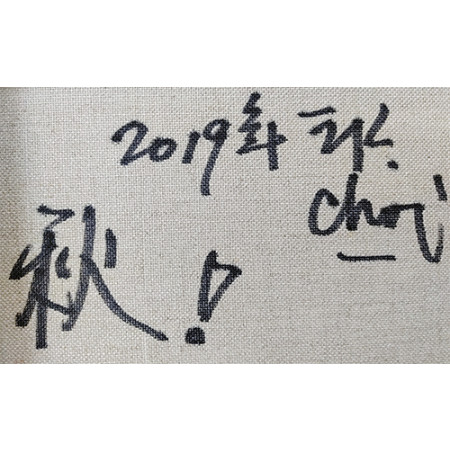 2019年
choi
秋!